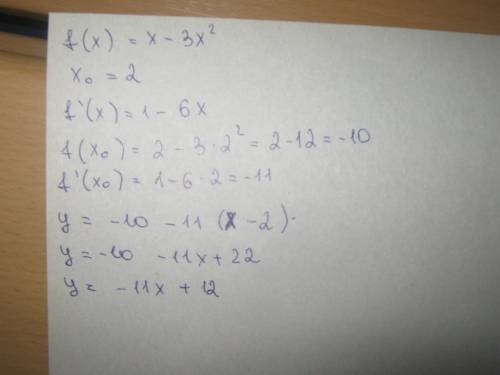 f(x) = x - 3x²
x₀ = 2
f'(x) = 1 - 6x
f(x₀) = 2 - 3·2² = 2-12 = -10
f'(x₀) = 1-6·2 = -11
y = -10 -11 (x-2).
y = -10 -11x + 22
y = -11x + 12